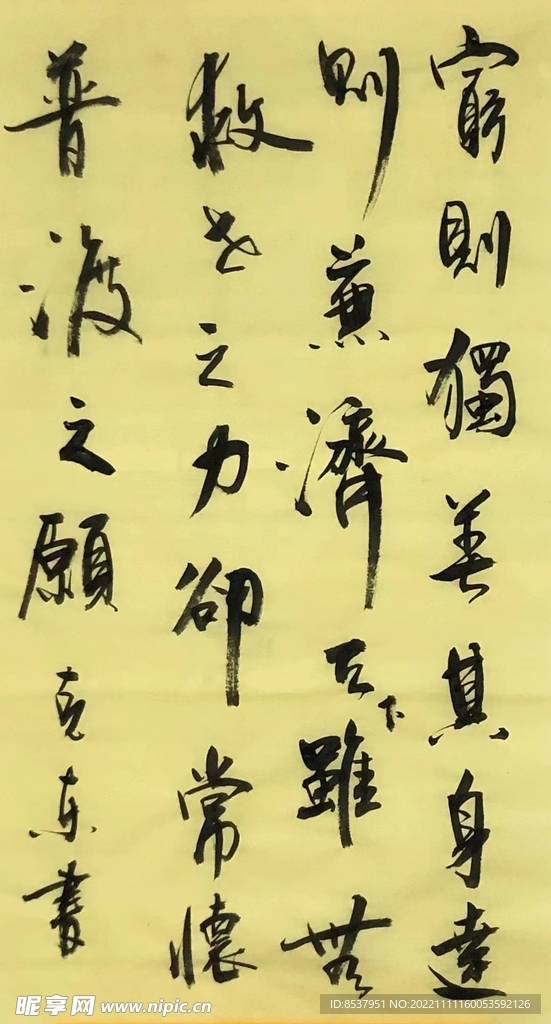 窮則獨善其身達
則兼濟天下雖無
救世之力卻常懷
普渡之願 克東書
昵享网 www.nipic.cn
ID:8537951 NO:20221111160053592126